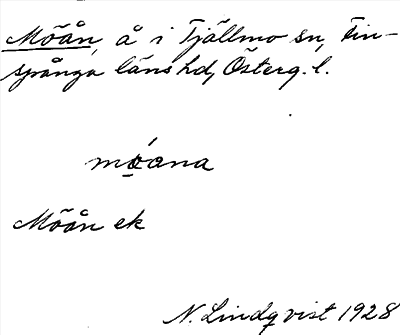 Möån, å i Tjällmo sn, Fin-
spånga läns hd, Österg. l.
móana
Möån ek
N. Lindqvist 1928